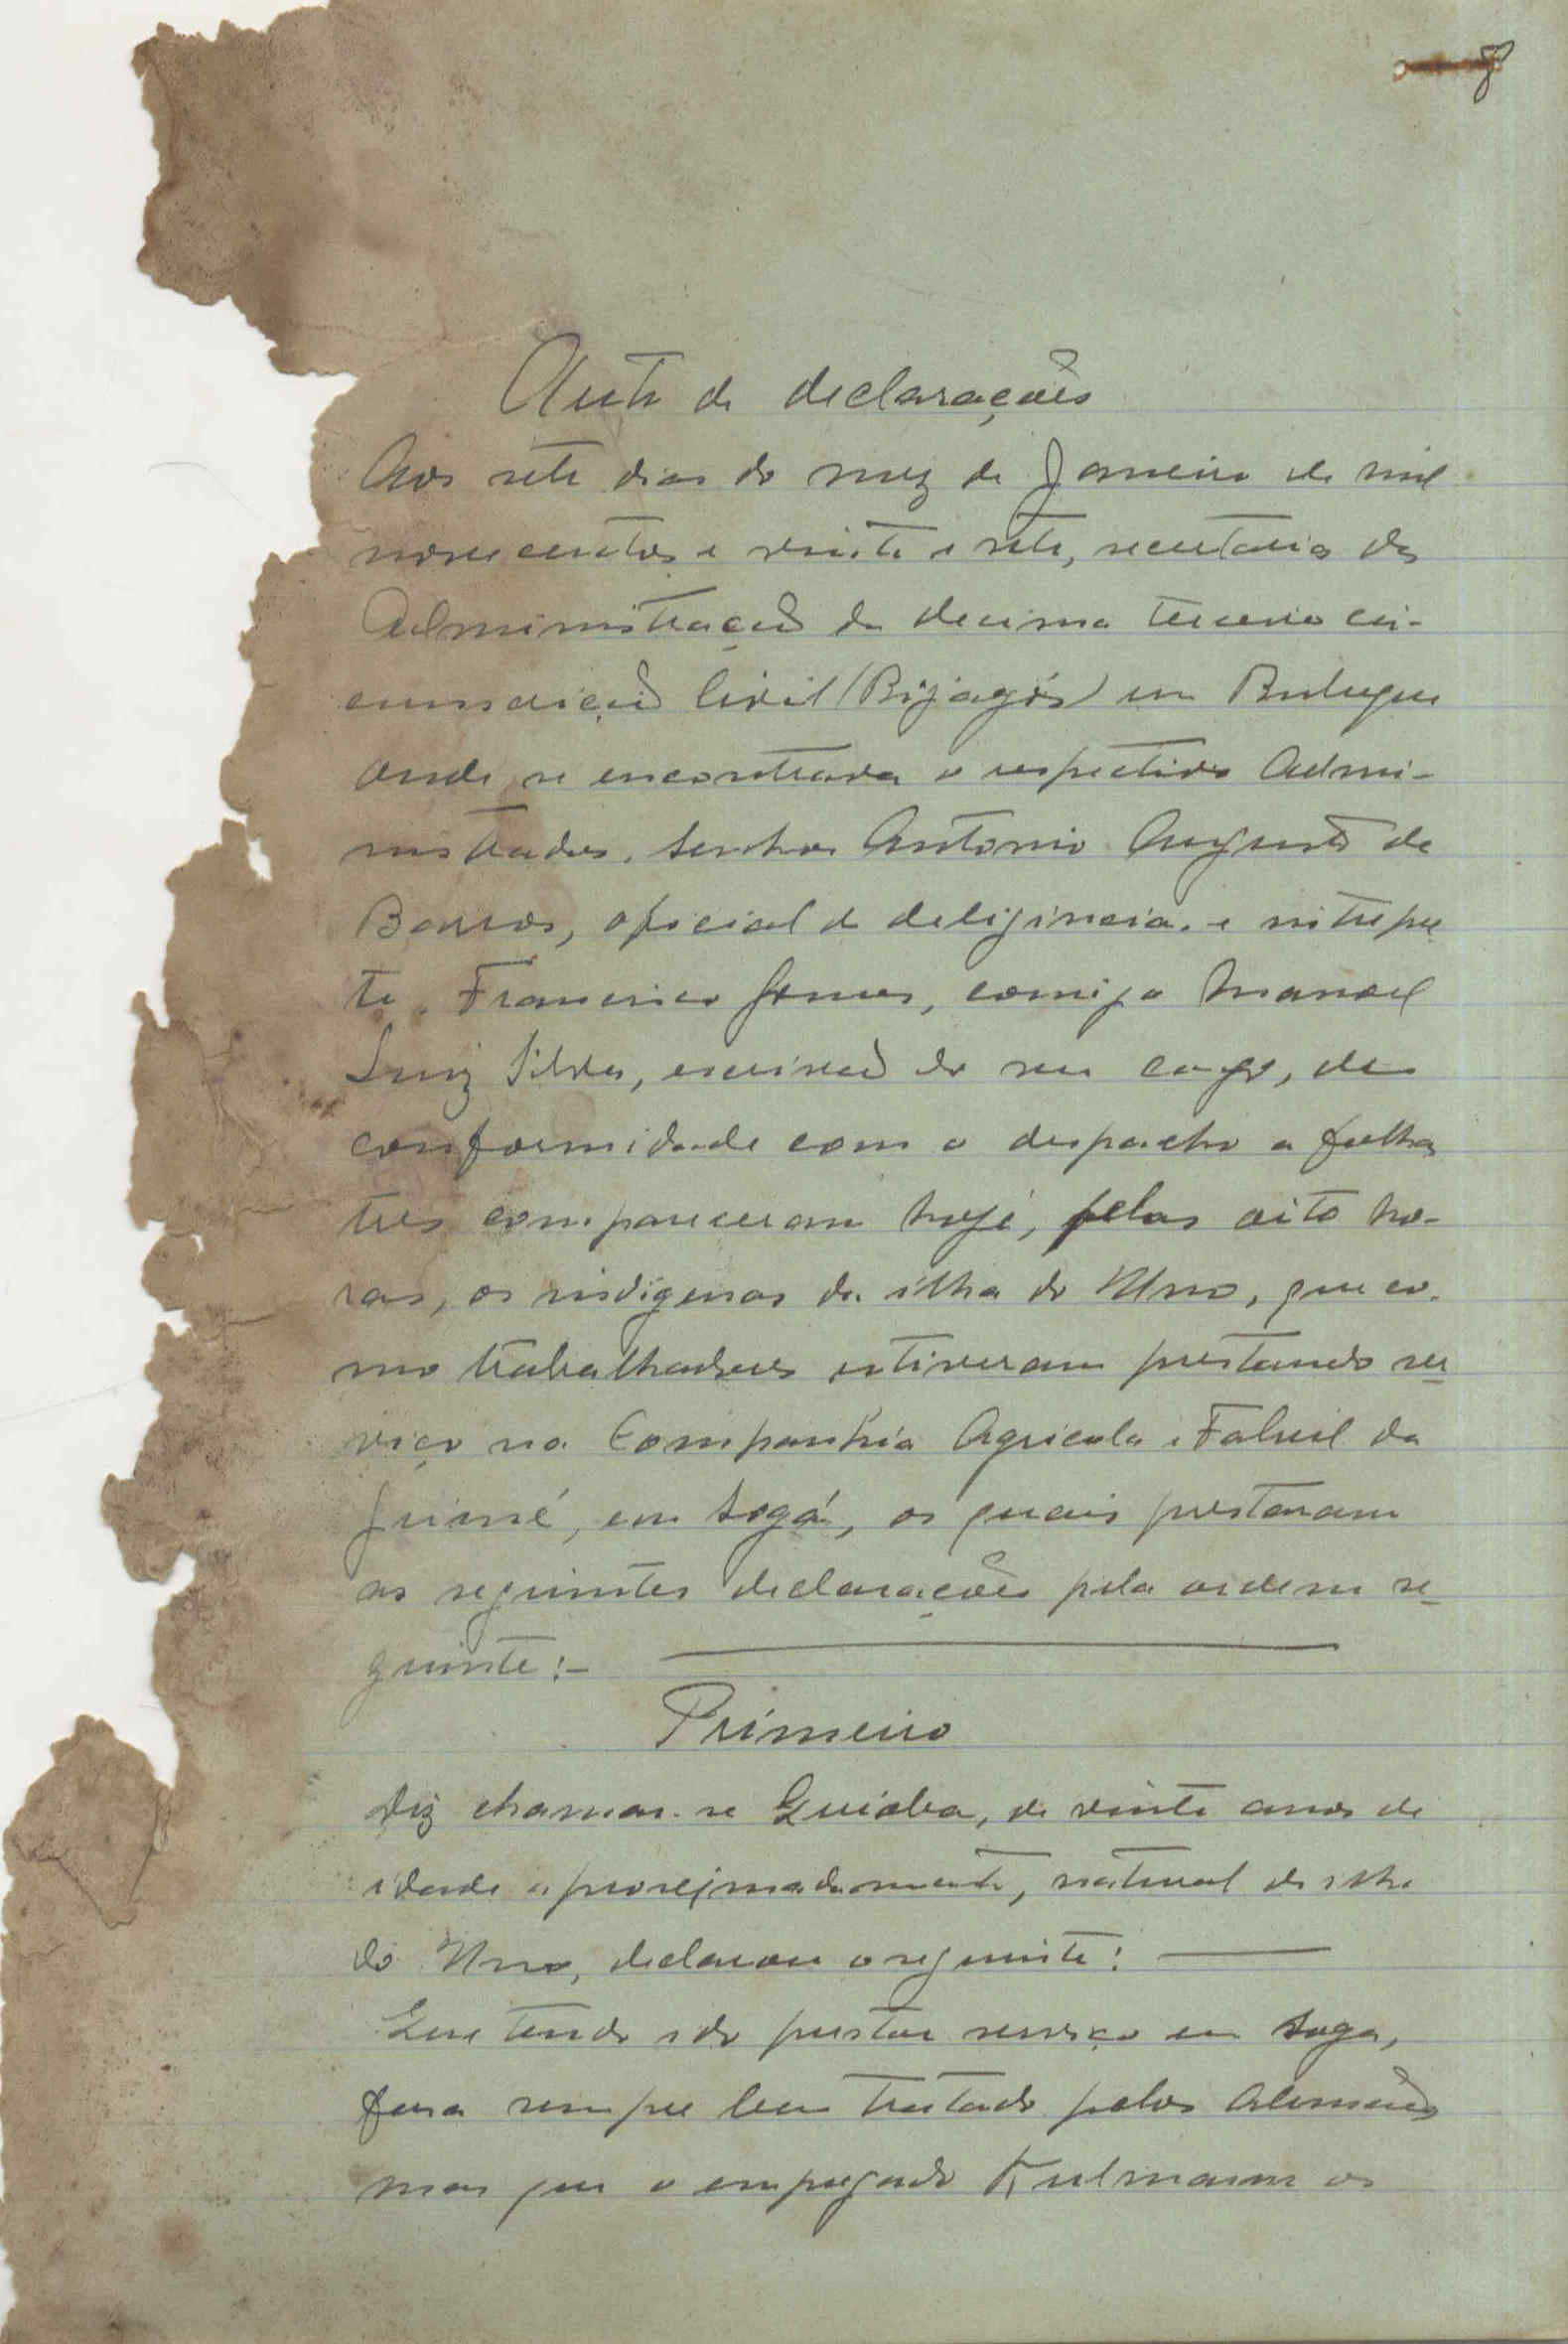 8
Auto de declarações
Aos sete dias do mez de Janeiro de mil
novecentos e vinte e sete, secretaria da
Administração da decima terceira cir-
cunscrição Civil (Bijagós) em Bubaque
onde se encontrava o respectivo Admi-
nistrador, Senhor Antonio Augusto de
Barros, oficial de deligencia, e interpre
te, Francisco Gomes, comigo Manoel
Luiz Silva, escrivão do seu cargo, de
conformidade com o despacho a folhas
tres compareceram hoje, pelas oito ho-
ras, os indigenas da ilha do Uno, que co-
mo trabalhadores estiveram prestando ser
viço na Companhia Agricola e Fabril da
Guiné, em Sogá, os quais prestaram
as seguintes declarações pela ordem se-
guinte:-
Primeiro
Diz chamar-se Quiaba, de vinte anos de
idade aproximadamente, natural da ilha
do Uno, declarou o seguinte:
Que tendo ido prestar serviço em Soga,
fora sempre bem tratado pelos Alemães
mas que o empregado Kulmann os